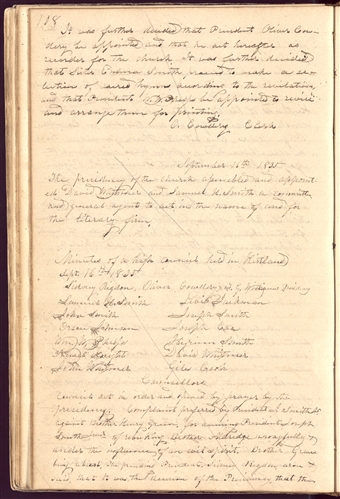 118
It was further decided that President Oliver Cow-
dery be appointed and that he act hereafter as
recorder for the church. It was further decided
that Sister Emma Smith proceed to make a se-
lection of sacred hymns according to the revelation,
and that President W. W. Phelps be appointed to revise
and arrange them for printing.
O. Cowdery Clerk
September 16th 1835
The presidency of the church assembled and appoint-
ed David Whitmer and Samuel H. Smith a committee
and general agent to act in the name of and for
the literary firm.
Minutes of a high council held in Kirtland
Sept. 16th 1835
Sidney Rigdon, Oliver Cowdery &
Samuel H. Smith
John Smith Joseph Smith
Orson Johnson Joseph Coe
W. W. Phelps Hyrum Smith
David Whitmer
John Whitmer Giles Cook
Councillors
Council set in order and opened by prayer by the
presidency. Complaint prefered by President J. Smith Jr
against Brother Henry Green, for accusing President Joseph
Smith of Brother Aldridge wrongfully &
under the influence of an evil spirit. Brother Green
being absent the President Sidney Rigdon arose &
said, that it was the decision of the Presidency that the